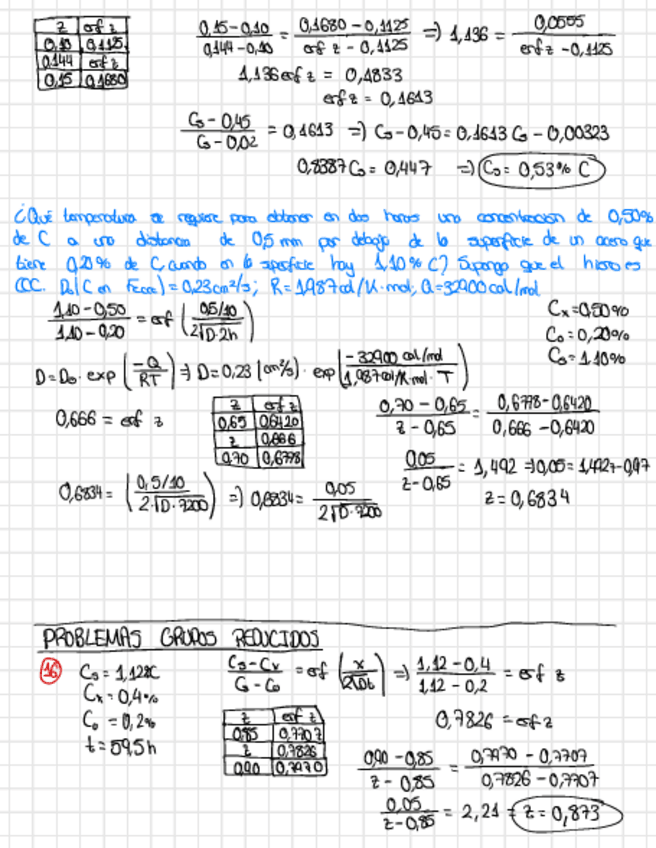 z | erf z
0,10 | 0,1125
0,144 | erf z
0,15 | 0,1680
0,15-0,10 / 0,144-0,10 = 0,1680-0,1125 / erf z - 0,1125 => 1,136 = 0,0555 / erf z - 0,1125
1,136 erf z = 0,1833
erf z = 0,1613
Cs - 0,45 / Cs - 0,02 = 0,1613 => Cs - 0,45 = 0,1613 Cs - 0,00323
0,8387 Cs = 0,447 => Cs = 0,53% C
¿Qué temperatura se requiere para obtener en dos horas una concentración de 0,50%
de C a una distancia de 0,5 mm por debajo de la superficie de un acero que
tiene 0,20% de C, cuando en la superficie hay 1,10% C? Suponga que el hierro es
CCC. D₀(C en Fe CCC) = 0,23 cm²/s; R = 1,987 cal/K·mol; Q = 32900 cal/mol
1,10 - 0,50 / 1,10 - 0,20 = erf (0,5/10 / 2√D·2h)
Cx = 0,50%
C₀ = 0,20%
Cs = 1,10%
D = D₀ · exp (-Q / RT) => D = 0,23 (cm²/s) · exp (-32900 cal/mol / 1,987 cal/K·mol · T)
0,666 = erf z
z | erf z
0,65 | 0,6420
z | 0,666
0,70 | 0,6778
0,70 - 0,65 / z - 0,65 = 0,6778 - 0,6420 / 0,666 - 0,6420
0,05 / z - 0,65 = 1,492 => 0,05 = 1,492z - 0,97
z = 0,6834
0,6834 = (0,5/10 / 2·√D·7200) => 0,6834 = 0,05 / 2√D·7200
PROBLEMAS GRUPOS REDUCIDOS
16
Cs = 1,12%C
Cx = 0,4%
C₀ = 0,2%
t = 59,5 h
Cs - Cx / Cs - C₀ = erf (x / 2√Dt) => 1,12 - 0,4 / 1,12 - 0,2 = erf z
0,7826 = erf z
z | erf z
0,85 | 0,7707
z | 0,7826
0,90 | 0,7970
0,90 - 0,85 / z - 0,85 = 0,7970 - 0,7707 / 0,7826 - 0,7707
0,05 / z - 0,85 = 2,21 = z = 0,873